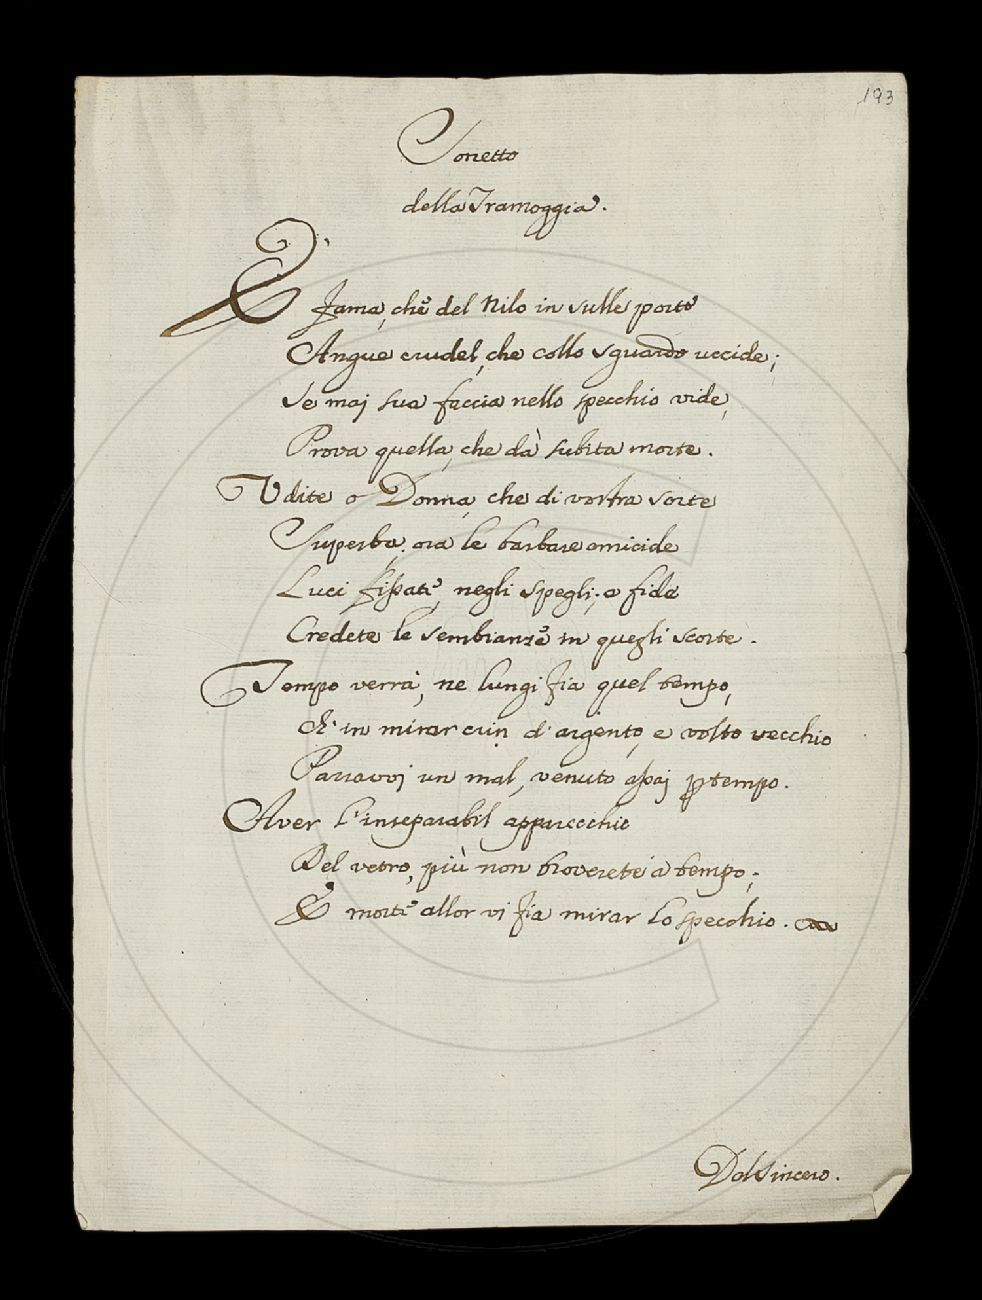 193
Sonetto
della Tramoggia.
È Fama, che del Nilo in sulle porte
Angue crudel, che collo sguardo uccide;
Se mai sua faccia nello specchio vide,
Prova quella, che dà subita morte.
Udite o Donna, che di vostra sorte
Superba, ora le barbare omicide
Luci fissate negli spegli; e fide
Credete le sembianze in quegli scorte.
Tempo verrà, ne lungi fia quel tempo,
Ch' in mirar crin d' argento, e volto vecchio
Parravvi un mal, venuto assai per tempo.
Aver l' inseparabil apparecchio
Del vetro, più non troverete a tempo;
E morte allor vi fia mirar lo specchio.
Del Sincero.